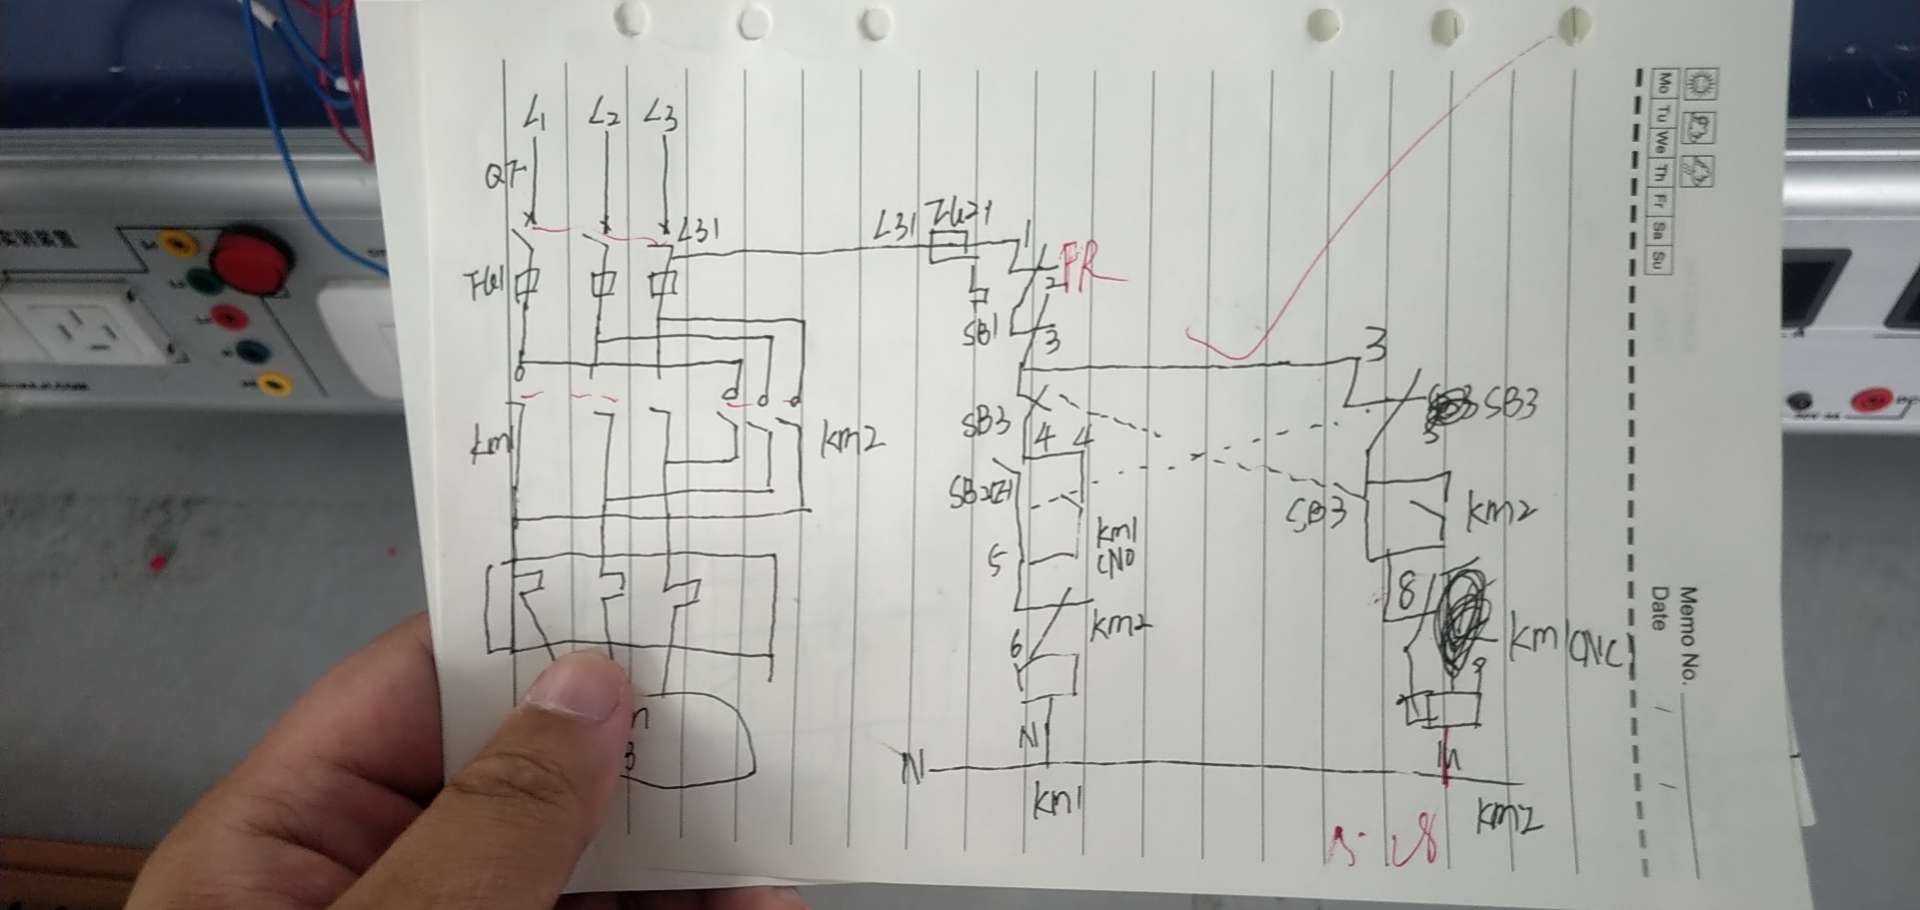 L1 L2 L3
QF
L31
L31
FU1
1
2
FR
SB1
3
3
SB3
SB3
4
4
KM1
KM2
KM1
5
SB3
KM2
8
6
KM2
KM1(NC)
9
N
N
KM1
KM2
Mo Tu We Th Fr Sa Su
Memo No.
Date / /